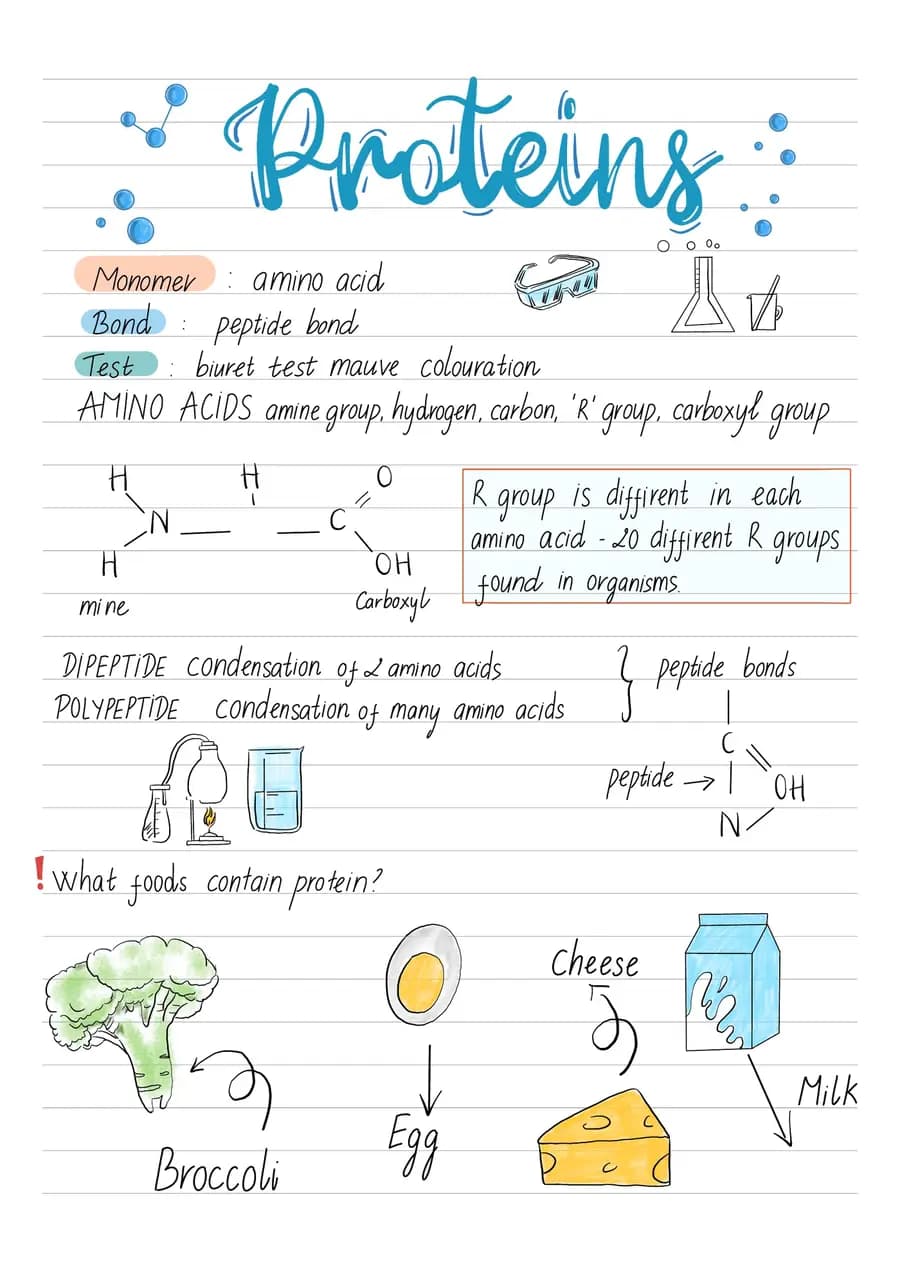 Proteins
Monomer : amino acid
Bond : peptide bond
Test : biuret test mauve colouration
AMINO ACIDS amine group, hydrogen, carbon, 'R' group, carboxyl group
H H O
N C
H OH
mine Carboxyl
R group is diffirent in each
amino acid - 20 diffirent R groups
found in organisms.
DIPEPTIDE condensation of 2 amino acids
POLYPEPTIDE condensation of many amino acids
peptide bonds
C
peptide → OH
N
! What foods contain protein?
Cheese
Milk
Egg
Broccoli